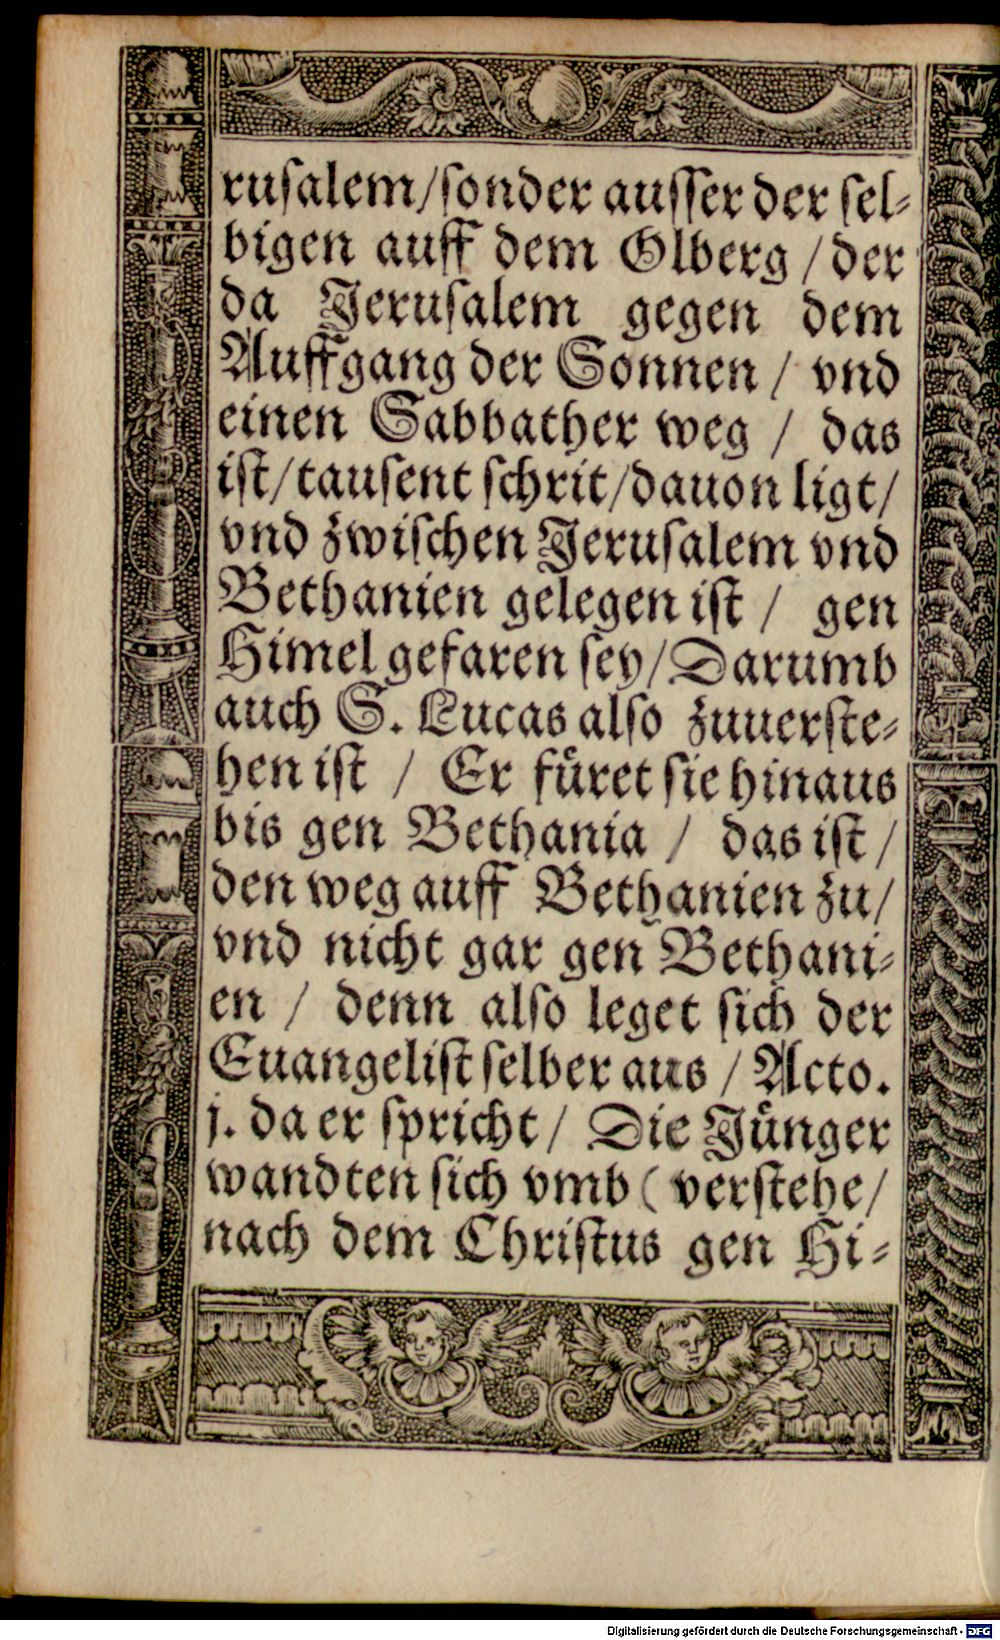 rusalem/sonder ausser der sel-
bigen auff dem Olberg / der
da Jerusalem gegen dem
Auffgang der Sonnen / vnd
einen Sabbather weg / das
ist/tausent schrit/dauon ligt/
vnd zwischen Jerusalem vnd
Bethanien gelegen ist / gen
Himel gefaren sey/Darumb
auch S. Lucas also zuuerste-
hen ist / Er füret sie hinaus
bis gen Bethania / das ist /
den weg auff Bethanien zu/
vnd nicht gar gen Bethani-
en / denn also leget sich der
Euangelist selber aus / Acto.
j. da er spricht / Die Jünger
wandten sich vmb ( verstehe/
nach dem Christus gen Hi-
Digitalisierung gefördert durch die Deutsche Forschungsgemeinschaft - DFG